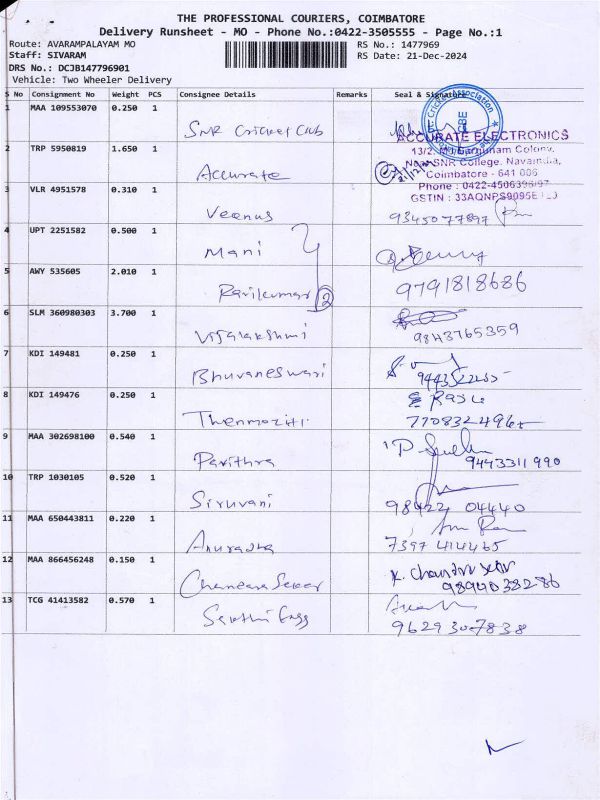 THE PROFESSIONAL COURIERS, COIMBATORE
Delivery Runsheet - MO - Phone No.:0422-3505555 - Page No.:1
Route: AVARAMPALAYAM MO
RS No.: 1477969
Staff: SIVARAM
RS Date: 21-Dec-2024
DRS No.: DCJB147796901
Vehicle: Two Wheeler Delivery
S No Consignment No Weight PCS Consignee Details Remarks Seal & Signature
1 MAA 109553070 0.250 1
SNR Cricket Club
ACCURATE ELECTRONICS
2 TRP 5950819 1.650 1
13/2, Colony,
Near SNR College, Navaindia,
Accurate
Coimbatore - 641 006
21/12/24
Phone : 0422-4506396/97
3 VLR 4951578 0.310 1
GSTIN : 33AQNPS9095E1
Veenus
9345077897
4 UPT 2251582 0.500 1
Mani
5 AWY 535605 2.010 1
Ravikumar 2
9791818686
6 SLM 360980303 3.700 1
Vijalakshmi
9843765359
7 KDI 149481 0.250 1
Bhuvaneswari
8 KDI 149476 0.250 1
Thenmozhi
9 MAA 302698100 0.540 1
Pavithra
9443311990
10 TRP 1030105 0.520 1
Siruvani
98422 04440
11 MAA 650443811 0.220 1
Anuradha
7397 414465
12 MAA 866456248 0.150 1
K. Chandra Sekar
Chandra Sekar
9894038286
13 TCG 41413582 0.570 1
9629307838